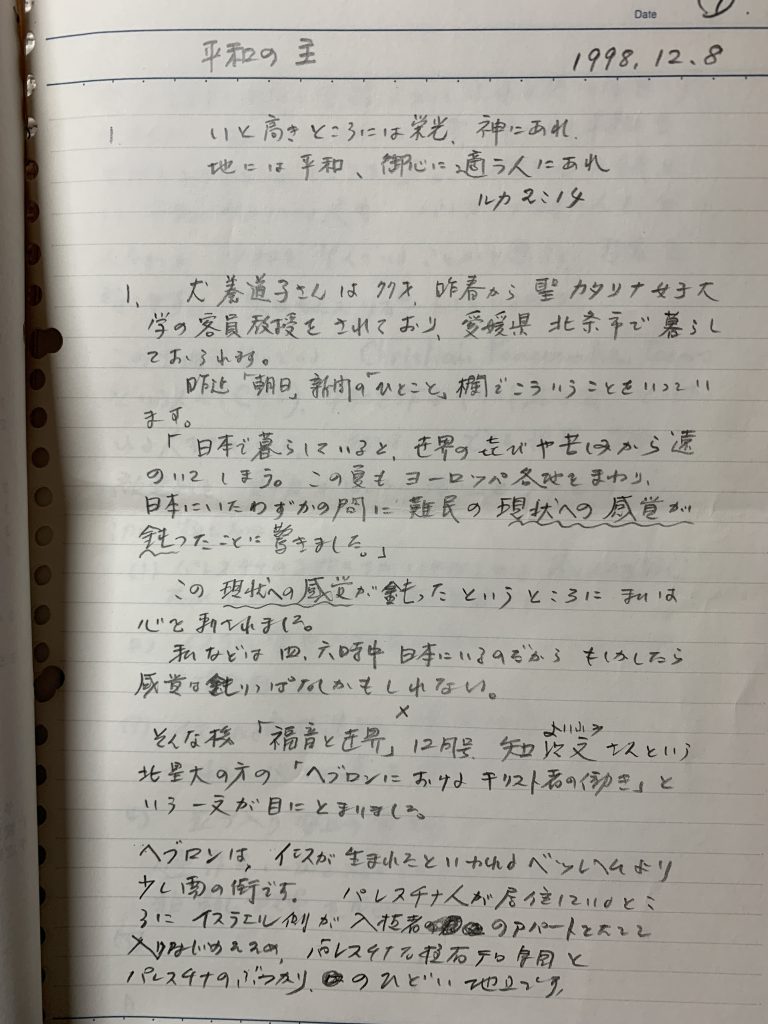 Date ①
平和の主 1998.12.8
1 いと高きところには栄光、神にあれ
地には平和、御心に適う人にあれ
ルカ2:14
1、 犬養道子さんは77才、昨春から聖カタリナ女子大
学の客員教授をされており、愛媛県北条市で暮らし
ておられます。
昨近「朝日」新聞の「ひとこと」欄でこういうことをいってい
ます。
「日本で暮らしていると、世界の喜びや苦しみから遠
のいてしまう。この夏もヨーロッパ各地をまわり、
日本にいたわずかの間に難民の現状への感覚が
鈍ったことに驚きました。」
この現状への感覚が鈍ったというところに私は
心を刺されました。
私などは四、六時中日本にいるのだから もしかしたら
感覚は鈍りっぱなしかもしれない。
×
そんな様「福音と世界」12月号、という
北星大の方の「ヘブロンにおけるキリスト者の働き」と
いう一文が目にとまりました。
ヘブロンは、イエスが生まれたといわれるベツレヘムより
少し南の街です。 パレスチナ人が居住しているとこ
ろにイスラエル側が入植者のアパートを
パレスチナ
パレスチナのぶつかり、のひどい地です。